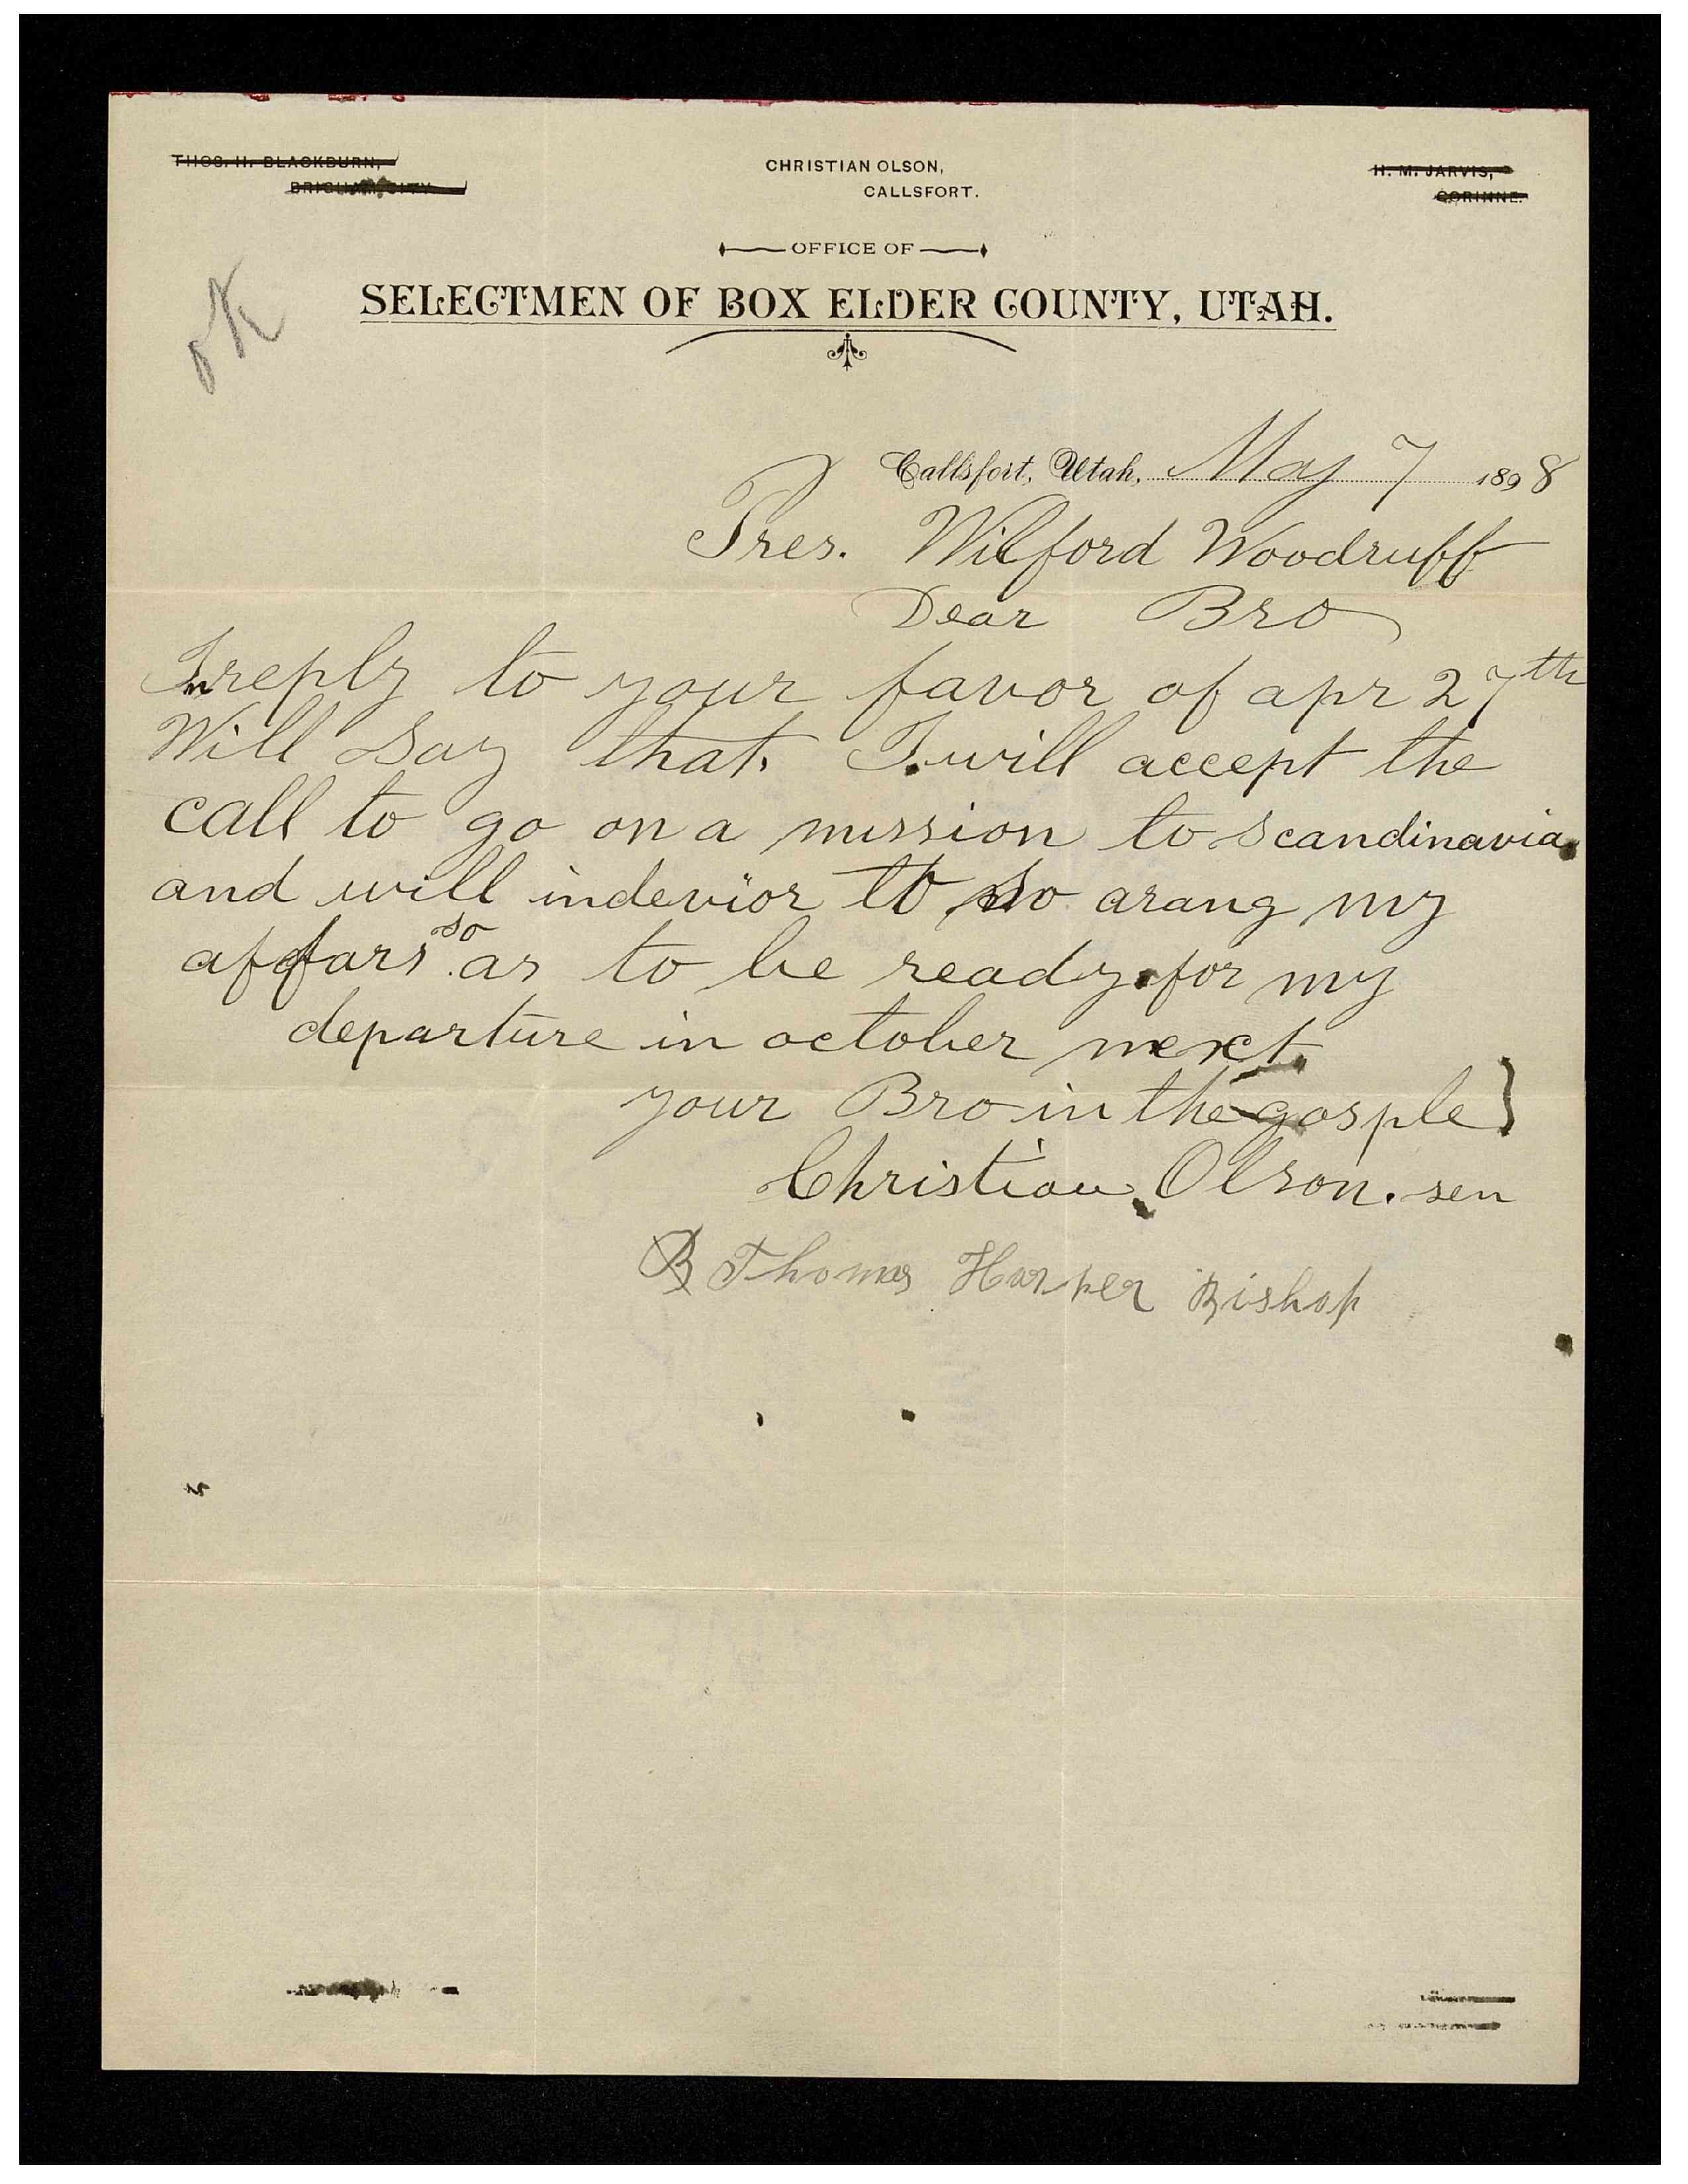 THOS. H. BLACKBURN,
BRIGHAM CITY.
CHRISTIAN OLSON,
CALLSFORT.
H. M. JARVIS,
CORINNE.
OFFICE OF
SELECTMEN OF BOX ELDER COUNTY, UTAH.
OK
Callsfort, Utah, May 7 1898
Pres. Wilford Woodruff
Dear Bro
In reply to your favor of apr 27th
Will Say that. I will accept the
call to go on a mission to Scandinavia
and will indevior to so arang my
affars so as to be ready for my
departure in october next.
your Bro in the gosple}
Christian Olson. sen
B Thomas Harper Bishop